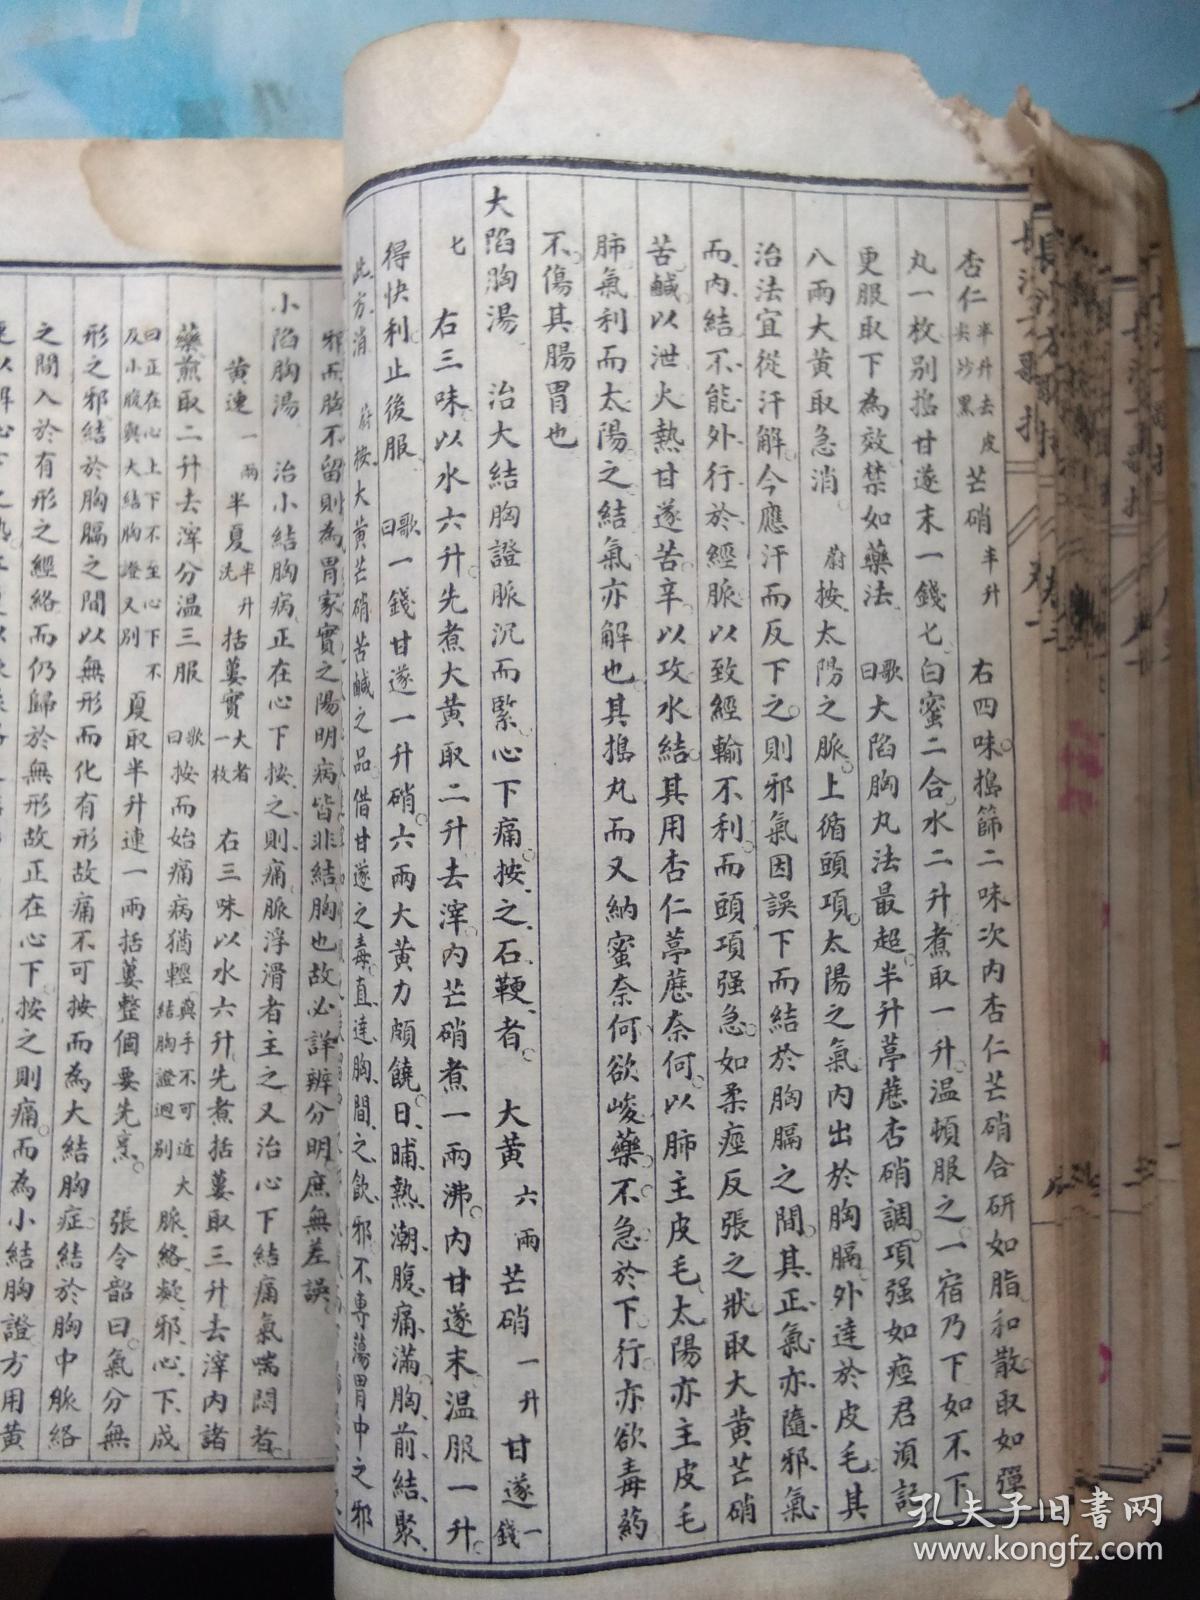 杏仁半升去皮尖炒黑芒硝半升　右四味搗篩二味次內杏仁芒硝合研如脂和散取如彈
丸一枚別搗甘遂末一錢匕白蜜二合水二升煮取一升温頓服之一宿乃下如不下
更服取下為效禁如藥法　歌曰大陷胸丸法最超半升葶藶杏硝調項强如痙君須記
八兩大黄取急消　蔚按太陽之脈上循頭項太陽之氣內出於胸膈外達於皮毛其
治法宜從汗解今應汗而反下之則邪氣因誤下而結於胸膈之間其正氣亦隨邪氣
而內結不能外行於經脈以致經輸不利而頭項强急如柔痙反張之狀取大黄芒硝
苦鹹以泄火熱甘遂苦辛以攻水結其用杏仁葶藶奈何以肺主皮毛太陽亦主皮毛
肺氣利而太陽之結氣亦解也其搗丸而又納蜜奈何欲峻藥不急於下行亦欲毒葯
不傷其腸胃也
大陷胸湯　治大結胸證脈沉而緊心下痛按之石鞕者　大黄六兩芒硝一升甘遂一錢
七　右三味以水六升先煮大黄取二升去滓內芒硝煮一兩沸內甘遂末温服一升
得快利止後服　歌曰一錢甘遂一升硝六兩大黄力頗饒日晡熱潮腹痛滿胸前結聚
此方消　蔚按大黄芒硝苦鹹之品借甘遂之毒直達胸間之飲邪不專蕩胃中之邪
邪而胸不留則為胃家實之陽明病皆非結胸也故必詳辨分明庶無差誤
小陷胸湯　治小結胸病正在心下按之則痛脈浮滑者主之又治心下結痛氣喘悶者
黄連一兩半夏半升洗括蔞實大者一枚　右三味以水六升先煮括蔞取三升去滓內諸
藥煎取二升去滓分温三服　歌曰按而始痛病猶輕與手不可近結胸證迥別大脈絡凝邪心下成
曰正在心上下不至心下不及小腹與大結胸證又別夏取半升連一兩括蔞整個要先烹　張令韶曰氣分無
形之邪結於胸膈之間以無形而化有形故痛不可按而為大結胸症結於胸中脈絡
之間入於有形之經絡而仍歸於無形故正在心下按之則痛而為小結胸證方用黄
孔夫子旧书网
www.kongfz.com